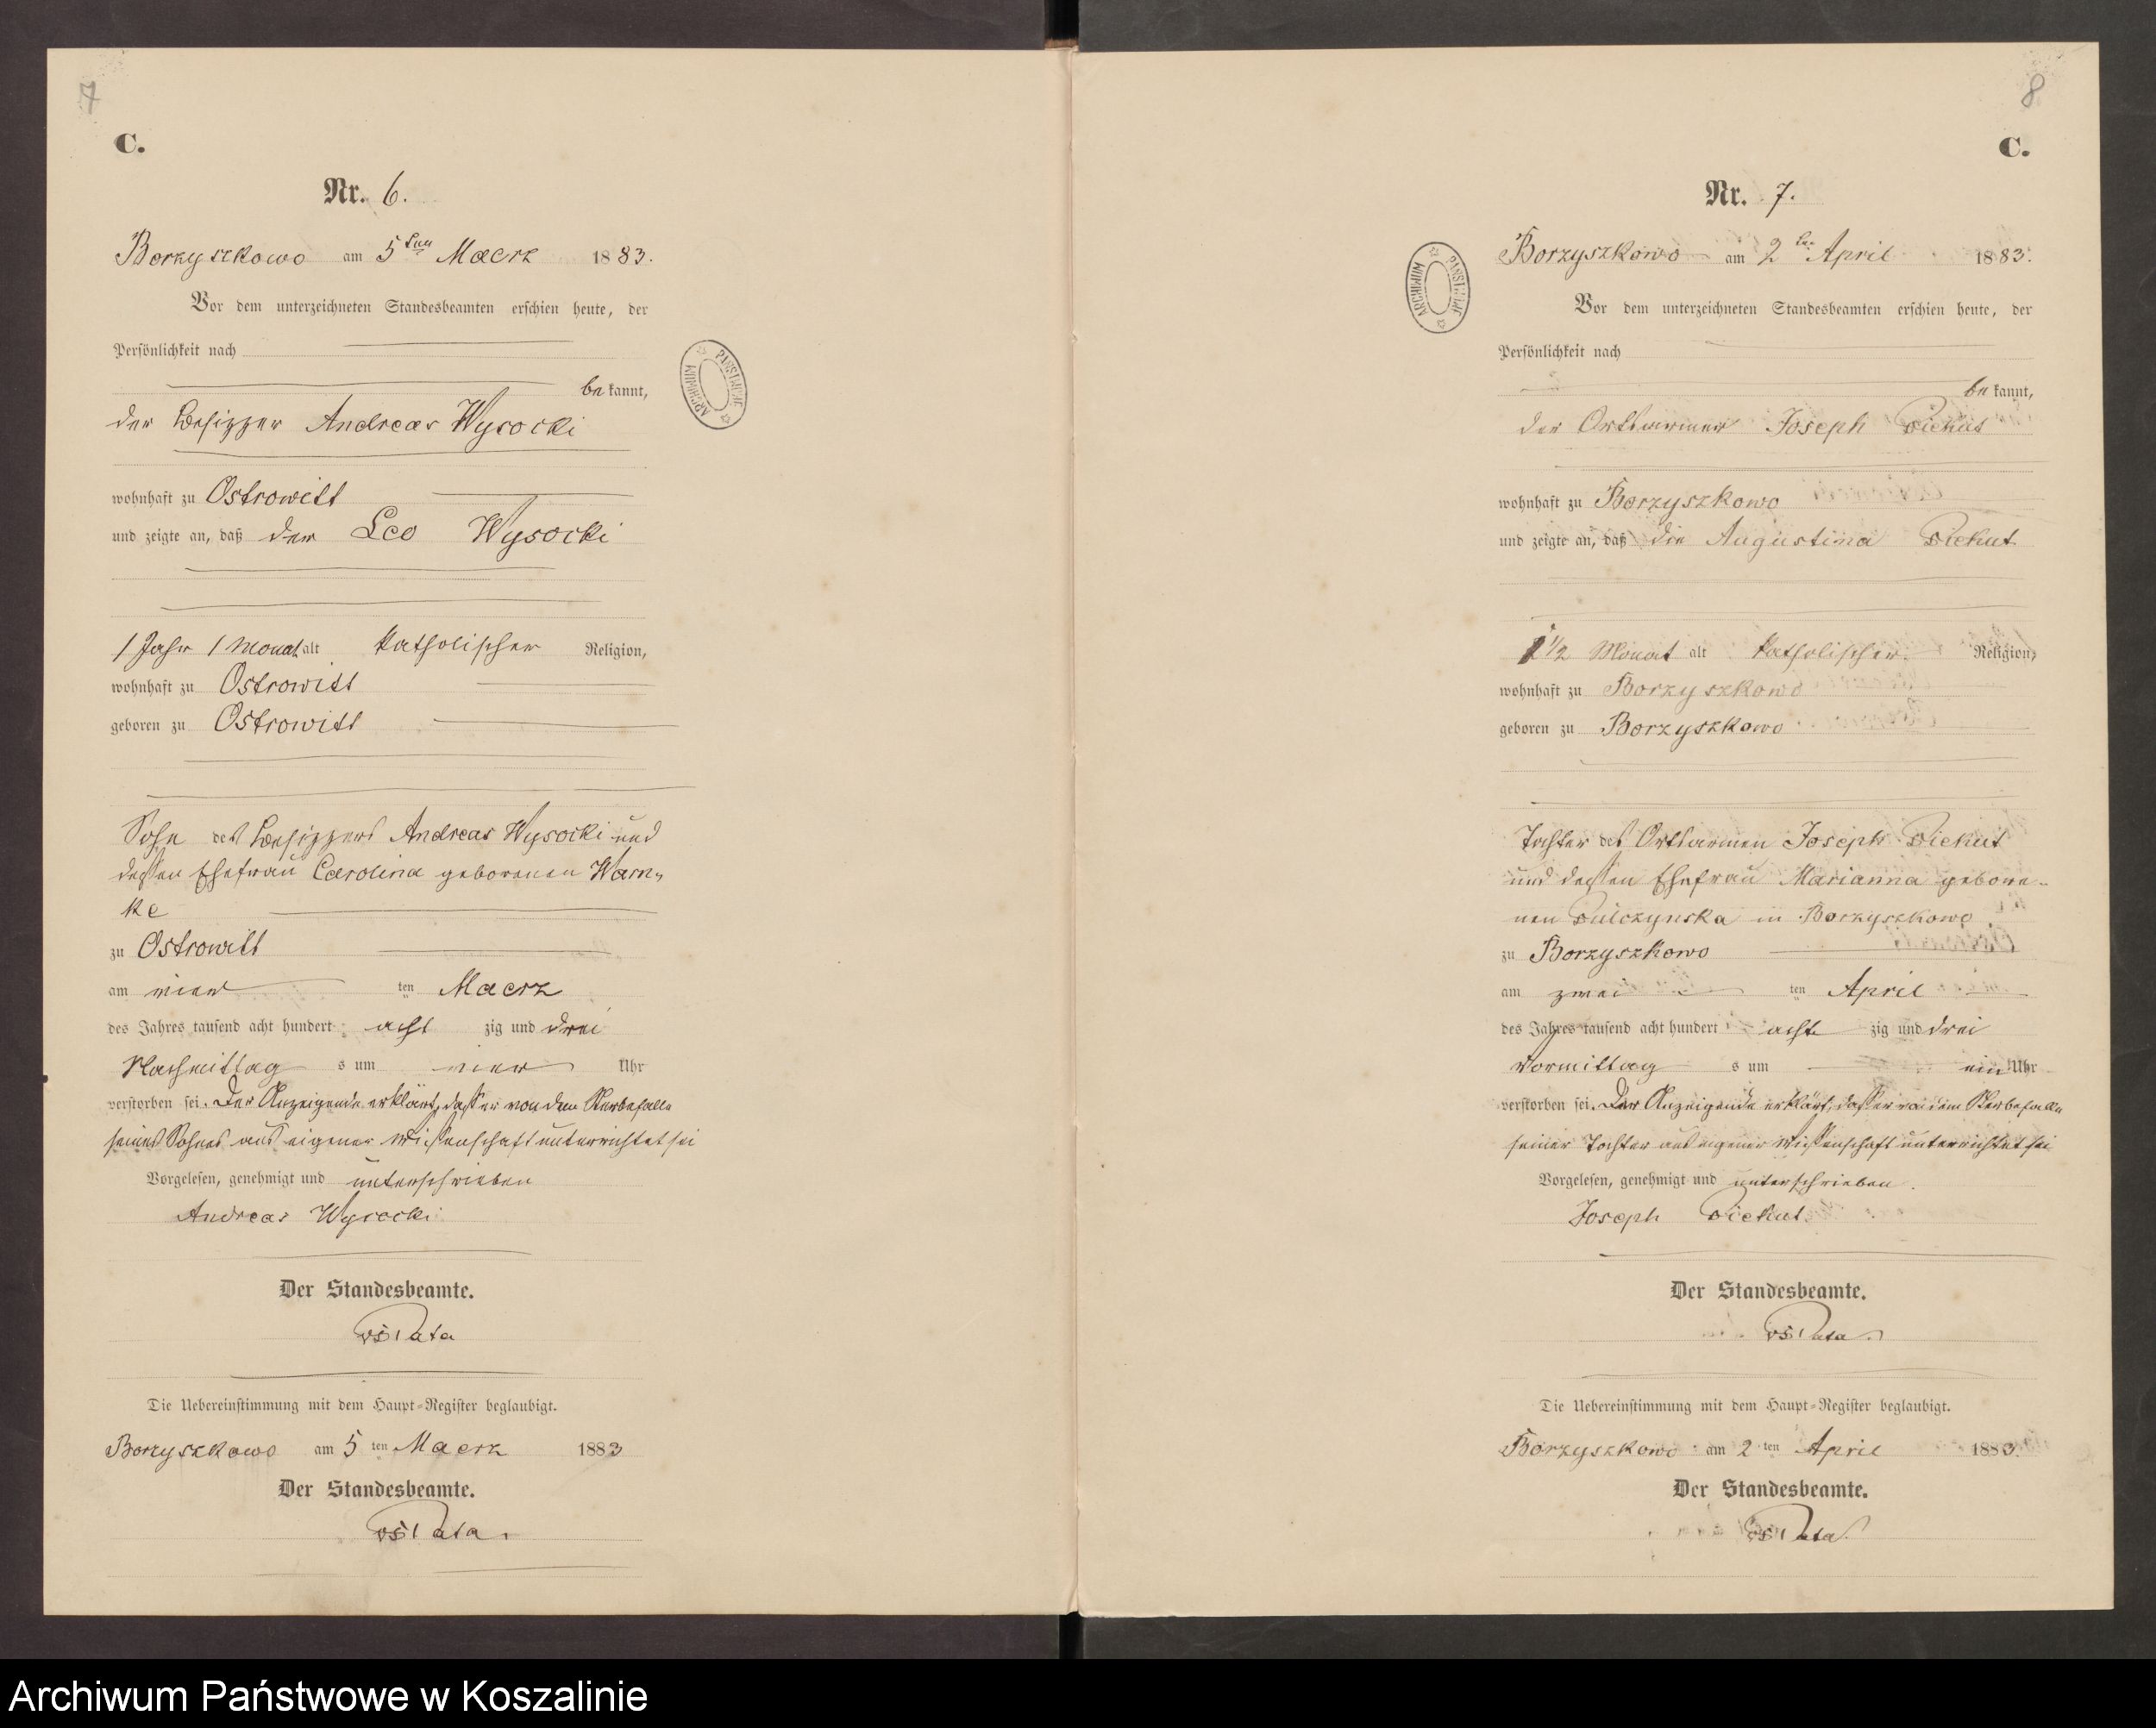 7
C.
Nr. 6.
Borzyszkowo am 5ten Maerz 1883.
Vor dem unterzeichneten Standesbeamten erschien heute, der
Persönlichkeit nach
be kannt,
der Besizzer Andreas Wysocki
wohnhaft zu Ostrowitt
und zeigte an, daß der Leo Wysocki
1 Jahr 1 Monat alt katholischer Religion,
wohnhaft zu Ostrowitt
geboren zu Ostrowitt
Sohn des Besizzers Andreas Wysocki und
dessen Ehefrau Carolina geborenen Warn-
ke
zu Ostrowitt
am vier ten Maerz
des Jahres tausend acht hundert acht zig und drei
Nachmittag s um vier Uhr
verstorben sei. Der Anzeigende erklärt, dass er von dem Sterbefalle
seines Sohnes aus eigener Wissenschaft unterrichtet sei
Vorgelesen, genehmigt und unterschrieben
Andreas Wysocki
Der Standesbeamte.
Die Uebereinstimmung mit dem Haupt-Register beglaubigt.
Borzyszkowo am 5 ten Maerz 1883
Der Standesbeamte.
ARCHIWUM PAŃSTWOWE
8
C.
Nr. 7.
Borzyszkowo am 2ten April 1883.
Vor dem unterzeichneten Standesbeamten erschien heute, der
Persönlichkeit nach
be kannt,
der Ortsarmer Joseph Piekut
wohnhaft zu Borzyszkowo
und zeigte an, daß die Augustina Piekut
1/2 Monat alt katholischer Religion,
wohnhaft zu Borzyszkowo
geboren zu Borzyszkowo
Tochter des Ortsarmen Joseph Piekut
und dessen Ehefrau Marianna gebore-
nen Pulczynska in Borzyszkowo
zu Borzyszkowo
am zwei ten April
des Jahres tausend acht hundert acht zig und drei
Vormittag s um ein Uhr
verstorben sei. Der Anzeigende erklärt, dass er von dem Sterbefalle
seiner Tochter aus eigener Wissenschaft unterrichtet sei
Vorgelesen, genehmigt und unterschrieben.
Joseph Piekut
Der Standesbeamte.
Die Uebereinstimmung mit dem Haupt-Register beglaubigt.
Borzyszkowo am 2 ten April 1883.
Der Standesbeamte.
ARCHIWUM PAŃSTWOWE
Archiwum Państwowe w Koszalinie